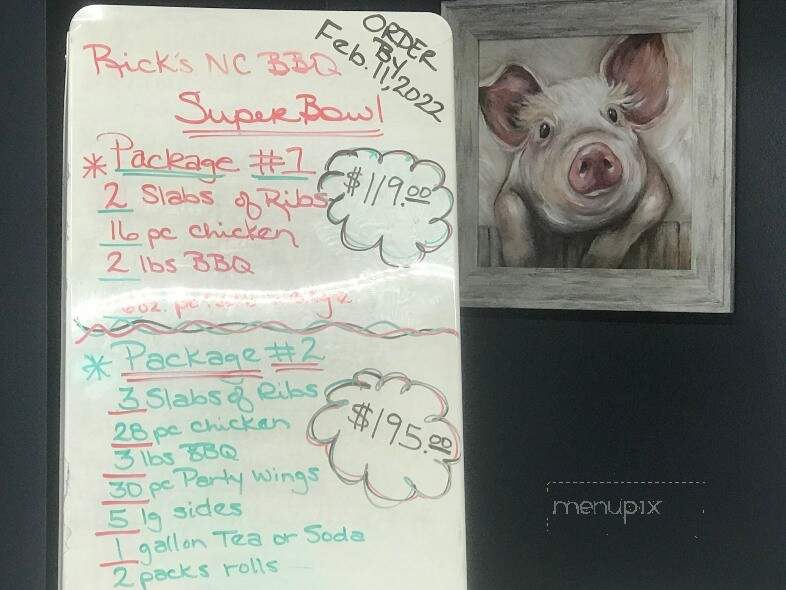 Rick's NC BBQ
ORDER
BY
Feb. 11, 2022
Super Bowl
* Package #1
$119.00
2 Slabs of Ribs
16 pc chicken
2 lbs BBQ
* Package #2
3 Slabs of Ribs
$195.00
28 pc chicken
3 lbs BBQ
30 pc Party Wings
5 lg sides
1 gallon Tea or Soda
2 packs rolls
menupix